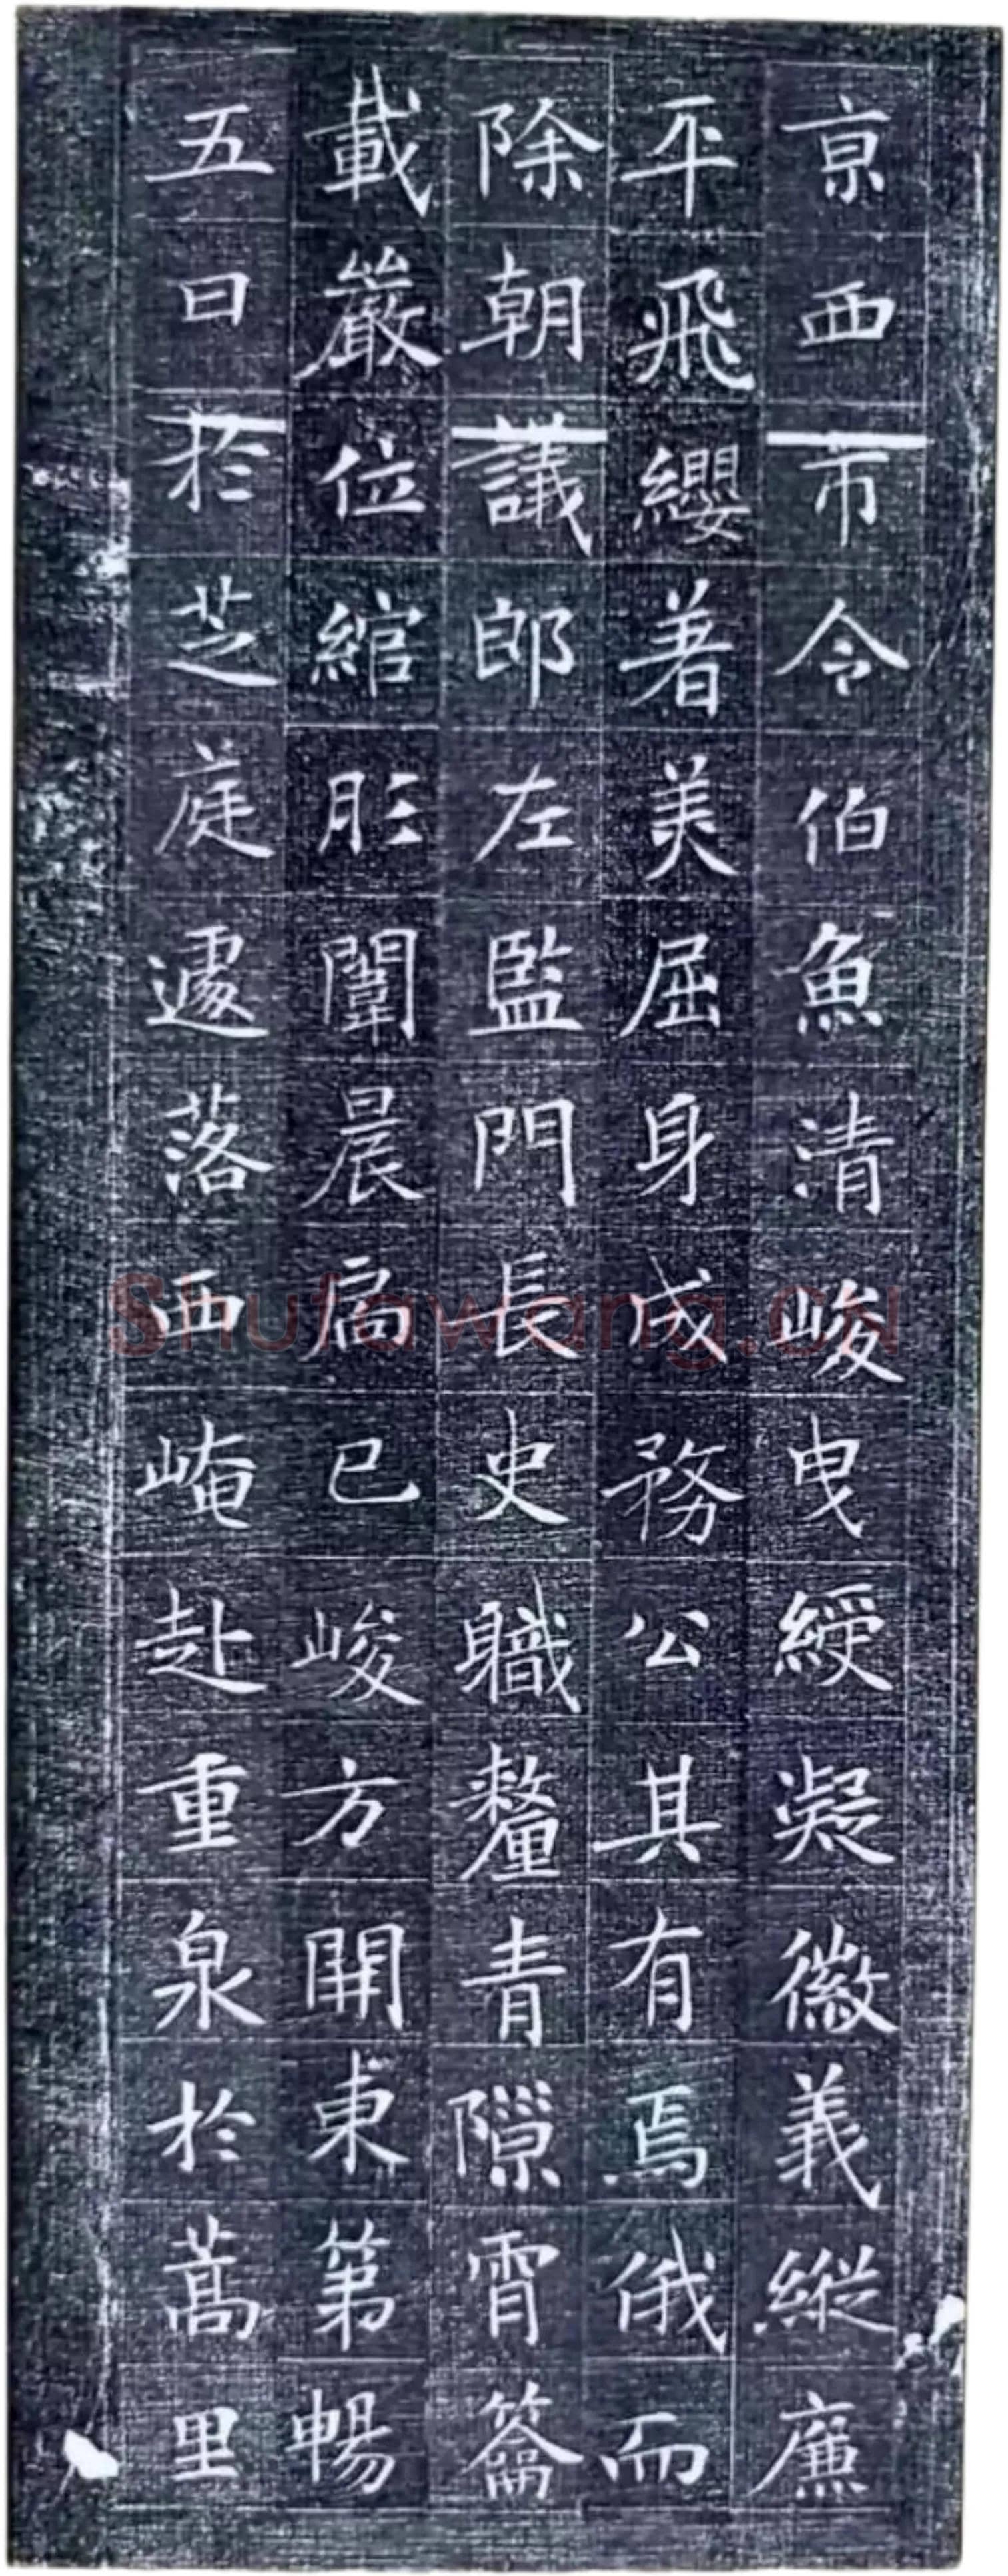 京西市令伯魚清峻曳綬凝徽義縱廉
平飛纓著美屈身成務公其有焉俄而
除朝議郎左監門長史職釐青隙宵籥
載嚴位綰彤闈晨扃已峻方開東第暢
五日於芝莚遽落西崦赴重泉於蒿里
Shufawang.CN